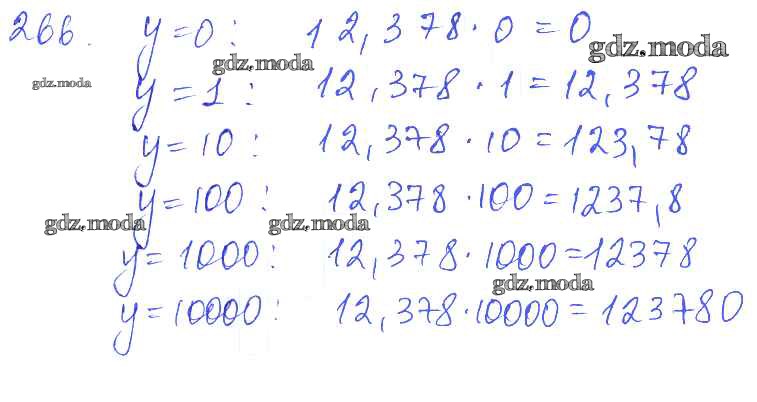 266. y=0: 12,378·0=0
gdz.moda
gdz.moda
gdz.moda
y=1: 12,378·1=12,378
y=10: 12,378·10=123,78
y=100: 12,378·100=1237,8
gdz.moda
gdz.moda
y=1000: 12,378·1000=12378
gdz.moda
y=10000: 12,378·10000=123780